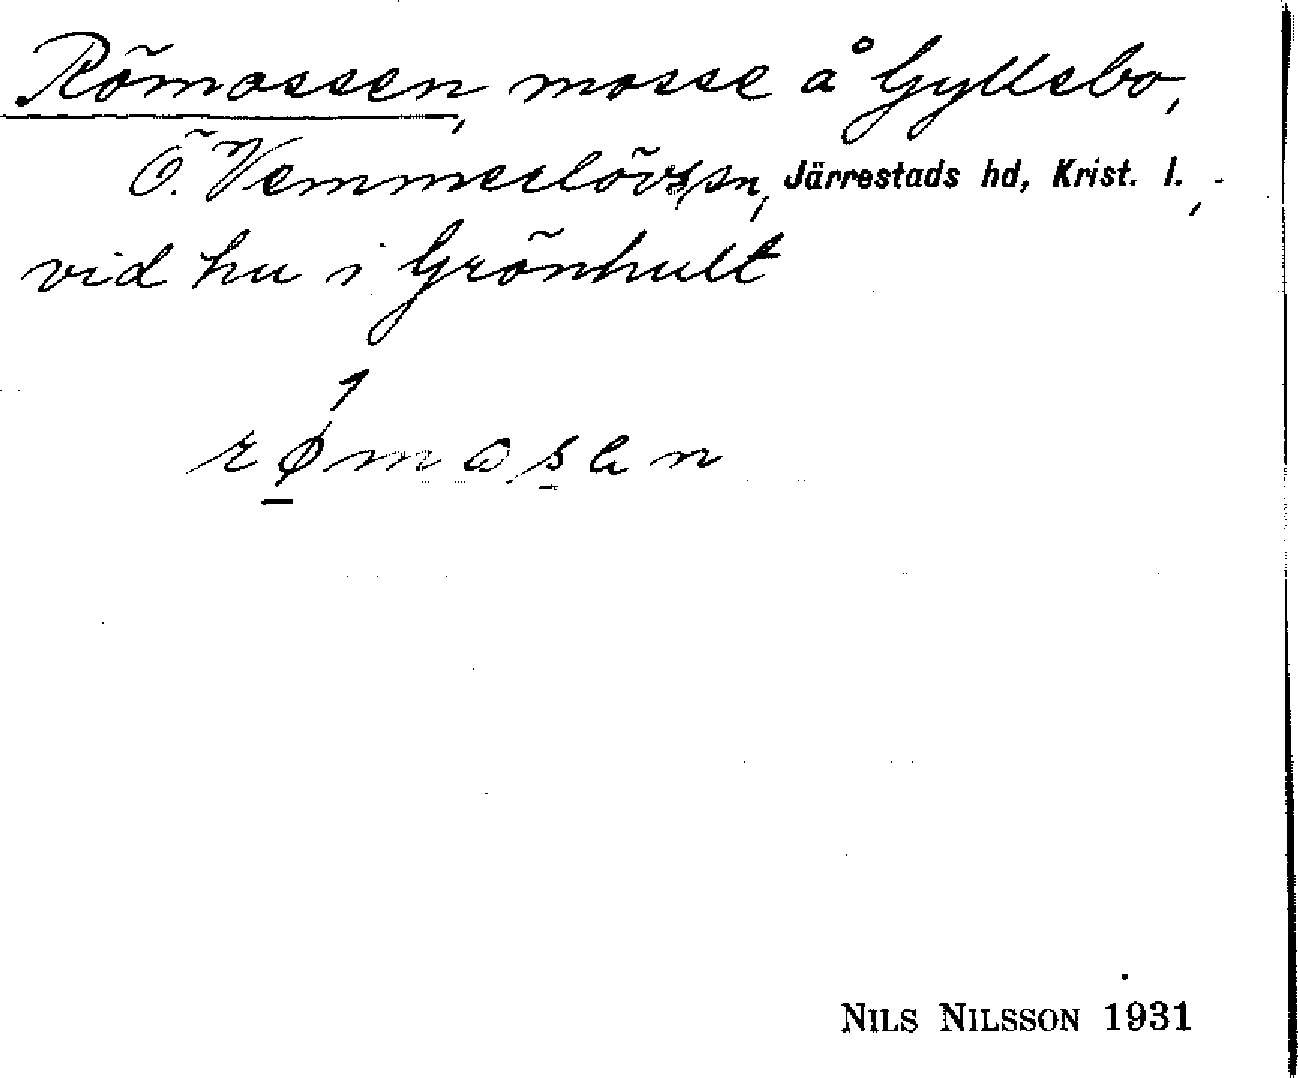 Römossen, mosse å Gyllebo,
Ö. Vemmerlövs sn, Järrestads hd, Krist. l.,
vid hu i Grönhult
NILS NILSSON 1931